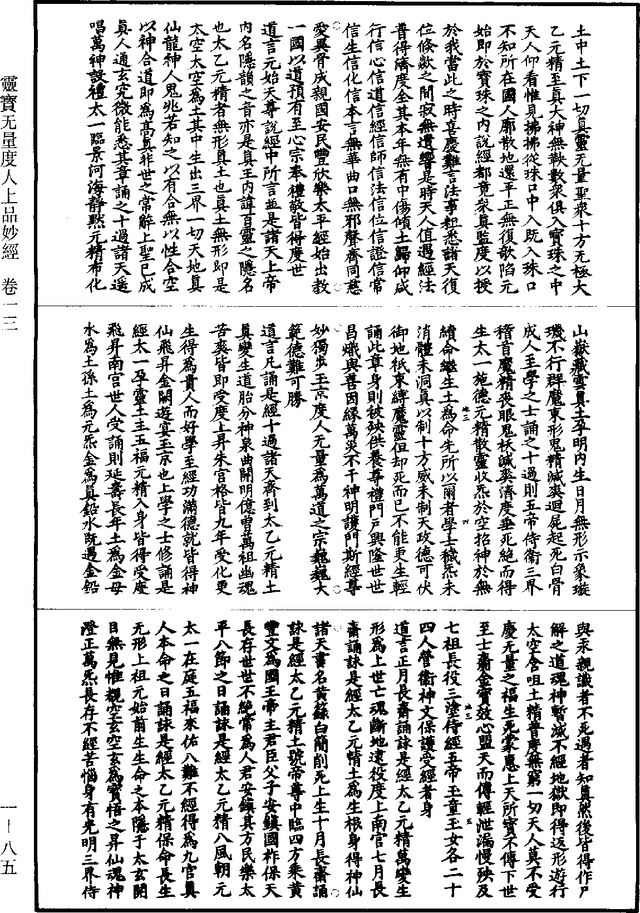 土中土下一切眞靈无量聖衆十方无極大
乙元精至真大神無鞅數衆俱入寶珠之中
天人仰看惟見拂拂從珠口中入既入珠口
不知所在國人廓散地還平正無復欹陷元
始即於寶珠之内說經都竟衆眞監度以授
於我當此之時喜慶難言法事粗悉諸天復
位倐歘之間寂無遺響是時天人值遇經法
普得濟度全其本年無有中傷傾土歸仰咸
行信心信道信經信師信法信位信證信常
信生信化信本言無華曲口無邪聲齊同慈
愛異骨成親國安民豐欣樂太平經始出教
一國以道預有至心宗奉禮敬皆得度世
道言元始天尊說經中所言並是諸天上帝
内名隱韻之音亦是真王内諱百靈之隱名
也太乙元精者無形真土也真土無形即是
太空太空為土其中生出三界一切天地真
仙龍神人鬼兆若知之以有合無以性合空
以神合道即為高真非世之常辭上聖已成
真人通玄究微能悉其章誦之十過諸天遥
唱萬神設禮太一臨景河海靜默元精布化
山嶽藏雲真土孕明内生日月無形示象璇
璣不行群魔束形鬼精滅爽迴屍起死白骨
成人至學之士誦之十過則五帝侍衛三界
稽首魔精喪眼鬼祅滅爽濟度垂死絶而得
生太一施德元精散靈收炁於空招神於無
續命繼生土為命先所以爾者學士穢炁未
消體未洞真以制十方威未制天政德可伏
御地祇束縛魔靈但却死而已不能更生輕
誦此章身則被殃供養尊禮門戶興隆世世
昌熾與善因緣萬災不干神明護門斯經尊
妙獨步玉京度人无量為萬道之宗巍巍大
範德難可勝
道言凡誦是經十過諸天齊到太乙元精土
真變生道胎分神泉曲開明億曽萬祖幽魂
苦爽皆即受度上昇朱宫格皆九年受化更
生得為貴人而好學至經功滿德就皆得神
仙飛昇金闕遊宴玉京也上學之士修誦是
經太一孕靈土主五福元精入身皆得受度
飛昇南宮世人受誦則延壽長年土為金母
水為土孫土為元炁金為真鉛水既遇金鉛
與汞親識者不死過者知真然後皆得作尸
解之道魂神暫滅不經地獄即得返形遊行
太空含咀土精普度無窮一切天人莫不受
慶无量之福生死蒙惠上天所寶不傳下世
至士齎金寶效心盟天而傳輕泄漏慢殃及
七祖長役三塗侍經五帝玉童玉女各二十
四人營衛神文保護受經者身
道言正月長齋誦詠是經太乙元精萬變生
形為上世亡魂斷地逮役度上南宫七月長
齋誦詠是經太乙元精土為生根身得神仙
諸天書名黃籙白簡削死上生十月長齋誦
詠是經太乙元精土號帝尊中臨四方乘黄
豐文為國王帝主君臣父子安鎮國祚保天
長存世世不絶常為人君安鎮其方民樂太
平八節之日誦詠是經太乙元精八風朝元
太一在庭五福來佑八難不經得為九宫真
人本命之日誦詠是經太乙元精保命長生
无形上祖元始前生生命之本隱于太玄開
目無見惟觀空玄空玄為實悟之昇仙魂神
澄正萬炁長存不經苦惱身有光明三界侍
靈寶无量度人上品妙經 卷二三
一-八五